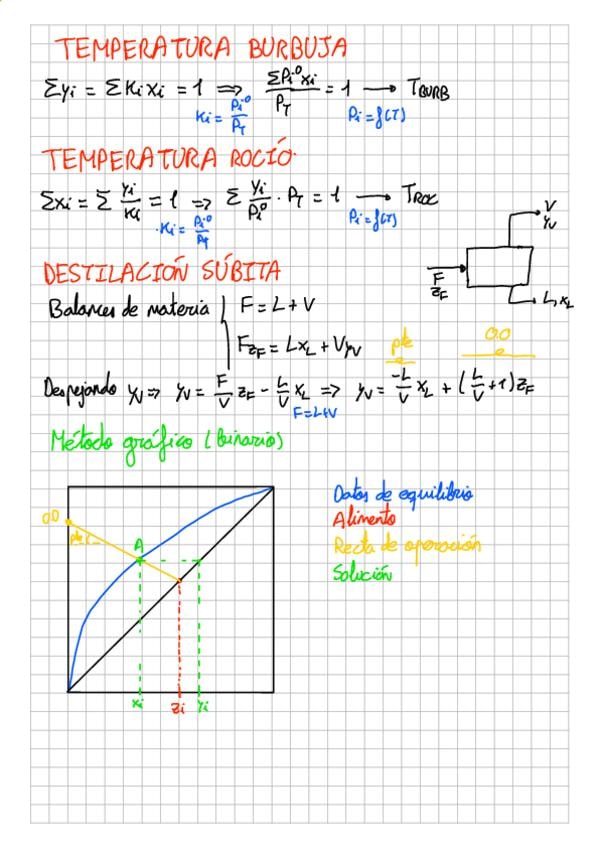 TEMPERATURA BURBUJA
Σyi = ΣKixi = 1 ⇒ ΣPi°xi/PT = 1 → TBURB
Ki = Pi°/PT   Pi = f(T)
TEMPERATURA ROCÍO
Σxi = Σ yi/Ki = 1 ⇒ Σ yi/Pi° · PT = 1 → TROC
Ki = Pi°/PT   Pi = f(T)
V
yV
F
zF
L, xL
DESTILACIÓN SÚBITA
Balances de materia F = L + V
FzF = LxL + VyV
pte   O.O
Despejando yV ⇒ yV = F/V zF - L/V xL ⇒ yV = -L/V xL + (L/V + 1) zF
F=L+V
Método gráfico (binario)
Datos de equilibrio
Alimento
Recta de operación
Solución
O.O
A
xi
zi
yi